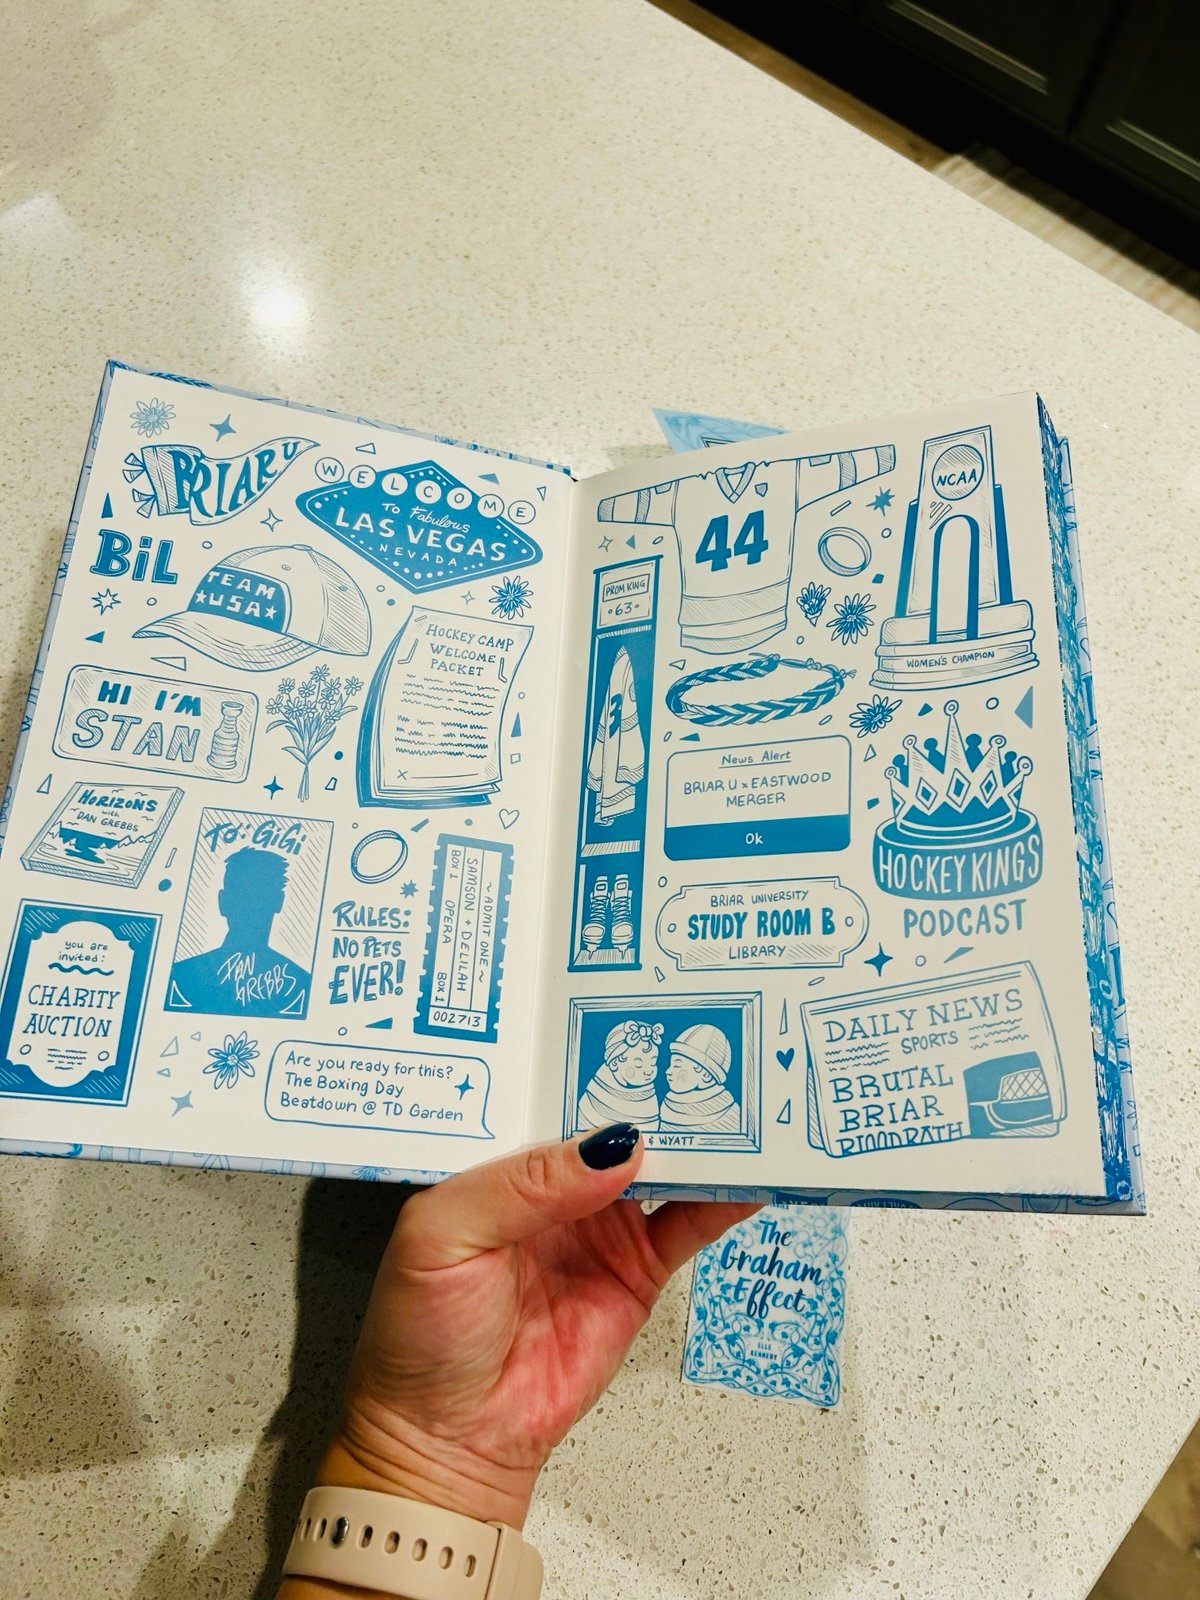 BRIAR U
WELCOME
TO Fabulous
LAS VEGAS
NEVADA
BiL
TEAM
USA
HOCKEY CAMP
WELCOME
PACKET
HI I'M
STAN
HORIZONS
with
DAN GREBBS
TO: GiGi
DAN
GREBBS
RULES:
NO PETS
EVER!
~ADMIT ONE~
SAMSON + DELILAH
OPERA
BOX 1
BOX 1
002713
you are
invited:
CHARITY
AUCTION
Are you ready for this?
The Boxing Day
Beatdown @ TD Garden
44
NCAA
WOMEN'S CHAMPION
PROM KING
63
3
News Alert
BRIAR U x EASTWOOD
MERGER
Ok
HOCKEY KINGS
PODCAST
BRIAR UNIVERSITY
STUDY ROOM B
LIBRARY
& WYATT
DAILY NEWS
SPORTS
BRUTAL
BRIAR
BLOODBATH
The
Graham
Effect
ELLE
KENNEDY